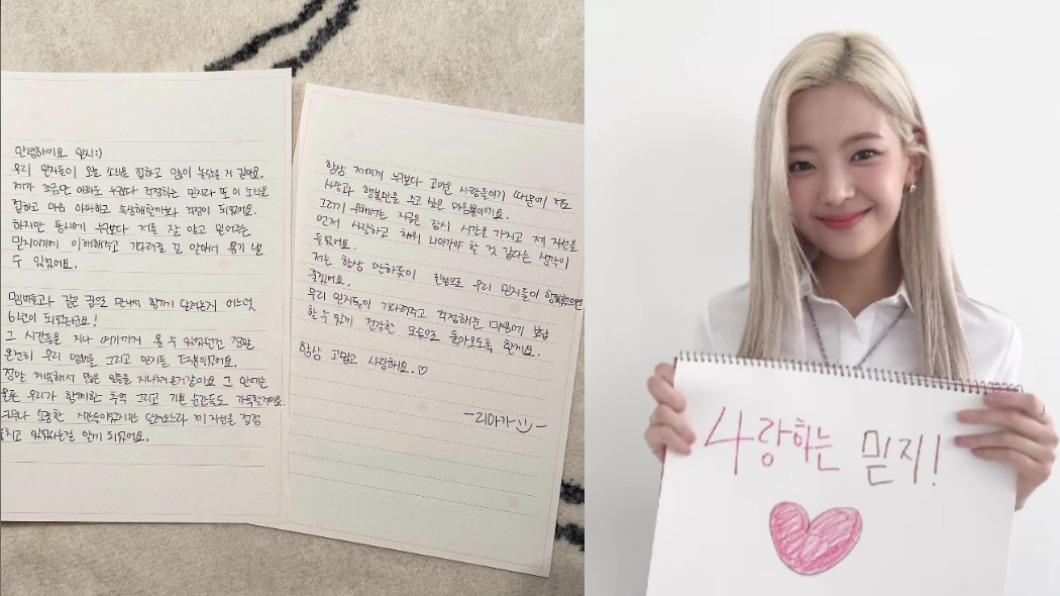 안녕하세요 믿지:)
우리 믿지들이 오늘 소식을 접하고 많이 놀랐을 거 같아요.
제가 조금만 아파도 누구보다 걱정하는 믿지라 또 이 소식을
접하고 마음 아파하고 속상해할까봐 걱정이 되었어요.
하지만 동시에 누구보다 저를 잘 알고 믿어주는
믿지이기에 이해해주고 기다려줄 걸 알아서 용기 낼
수 있었어요.
멤버들과 같은 꿈으로 만나서 함께 달려온지 어느덧
6년이 되었더라구요!
그 시간들을 지나 여기까지 올 수 있었던건 정말
온전히 우리 멤버들 그리고 믿지들 덕분이었어요.
정말 계속해서 많은 일들을 지나쳐온거같아요 그 안에는
물론 우리가 함께한 추억 그리고 기쁜 순간들도 가득한거예요.
소중한 시간들이었지만 달려오느라 제 자신을 점점
있었다는걸 알게 되었어요.
항상 저에게 누구보다 고마운 사람들이기 때문에 저도
사랑과 행복만을 주고 싶은 마음뿐이에요.
그러기 위해서는 지금은 잠시 시간을 가지고 제 자신을
먼저 사랑하고 채워 나아가야 할 것 같다는 생각이
들었어요.
저는 항상 말하듯이 진심으로 우리 믿지들이 행복했으면
좋겠어요.
우리 믿지들이 기다려주고 걱정해준 마음에 보답
할 수 있게 건강한 모습으로 돌아오도록 할게요.
항상 고맙고 사랑해요.♡
-리아가
사랑하는 믿지!